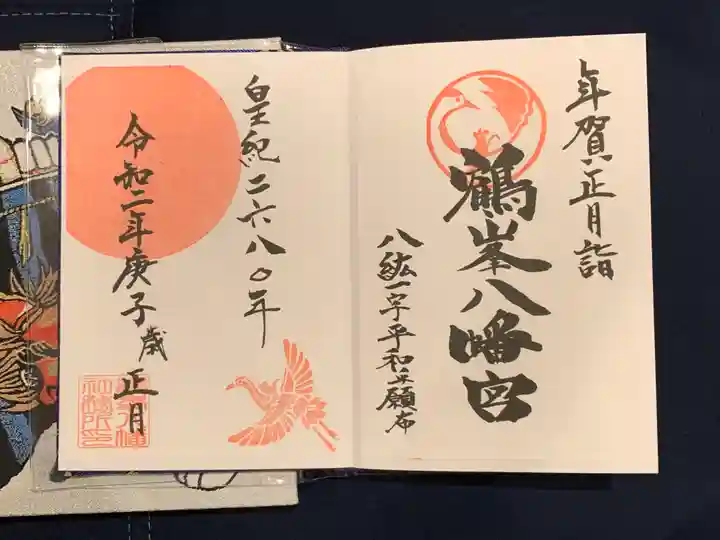 年賀正月詣
鶴峯八幡宮
八紘一宇平和祈願
皇紀二六八〇年
令和二年庚子歳正月